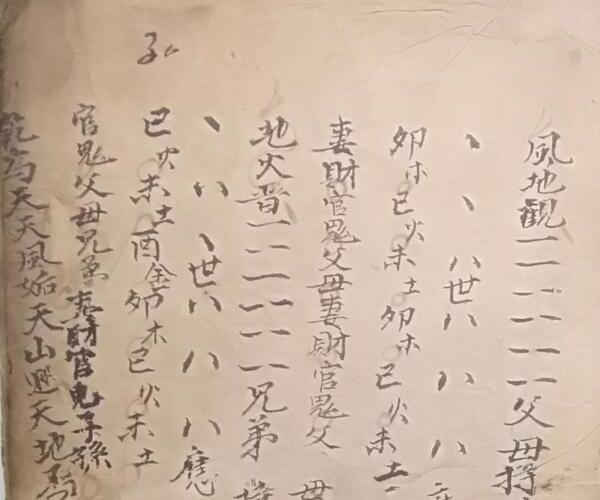 風地觀父母持
丶丶八世八八八
卯木巳火未土卯木巳火未土
妻財官鬼父母妻財官鬼父母
地火晋兄弟
丶八丶世八八八應
巳火未土酉金卯木巳火未土
官鬼父母兄弟妻財官鬼子孫
乾為天天風姤天山遯天地否